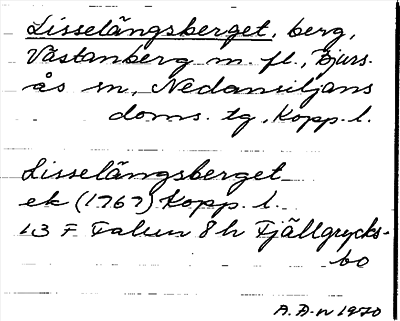 Lisselängsberget, berg,
Västanberg m. fl., Bjurs-
ås sn, Nedansiljans
doms. tg, Kopp. l.
Lisselängsberget
ek (1767) Kopp. l.
13 F Falun 8 h Fjällgrycks-
bo
A.A-n 1970